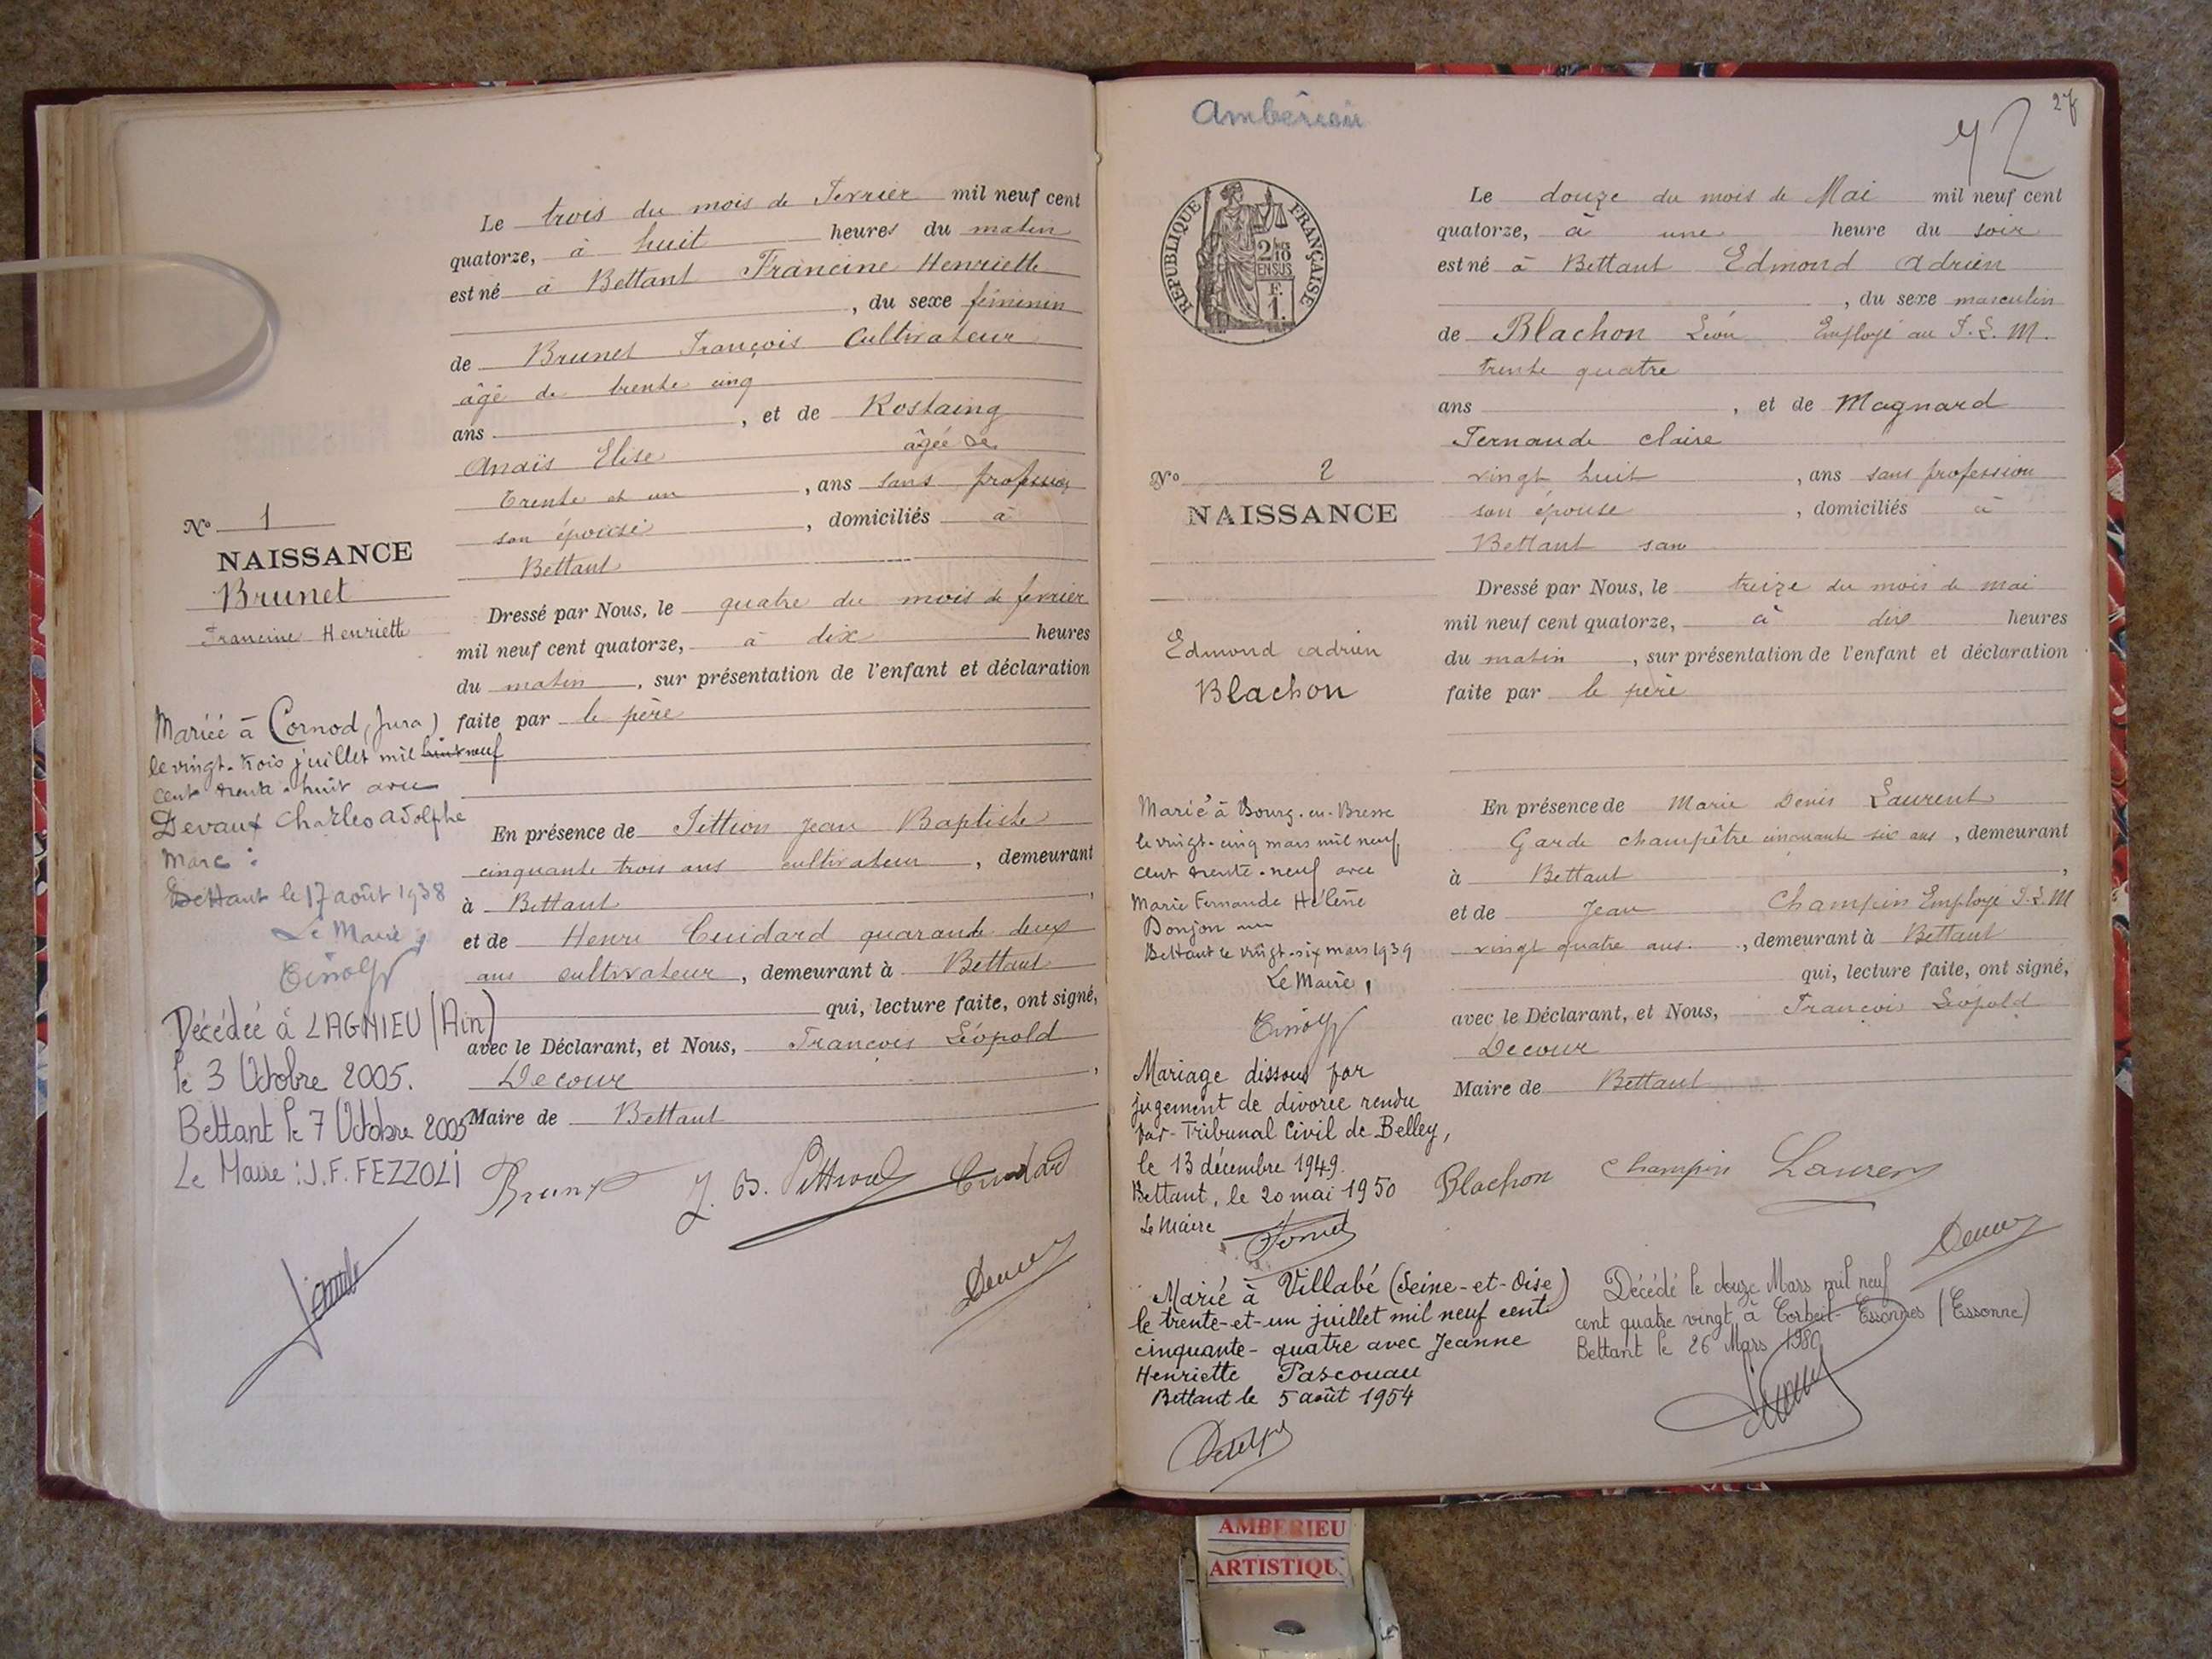 Le trois du mois de Fevrier mil neuf cent
quatorze, à huit heures du matin
est né à Bettant Francine Henriette
, du sexe féminin
de Brunet François Cultivateur
âgé de trente cinq
ans , et de Rostaing
Anaïs Elise âgée de
trente et un , ans sans profession
son épouse , domiciliés à
Bettant
No 1
NAISSANCE
Brunet
Francine Henriette
Dressé par Nous, le quatre du mois de fevrier
mil neuf cent quatorze, à dix heures
du matin , sur présentation de l'enfant et déclaration
faite par le père
Mariée à Cornod (Jura)
le vingt-trois juillet mil huit neuf
cent trente-huit avec
Devaux Charles Adolphe
Marc :
Bettant le 17 août 1938
Le Maire,
En présence de Pittion Jean Baptiste
cinquante trois ans cultivateur , demeurant
à Bettant ,
et de Henri Cuidard quarante deux
ans cultivateur , demeurant à Bettant
qui, lecture faite, ont signé,
avec le Déclarant, et Nous, François Léopold
Decour ,
Maire de Bettant
Décédée à LAGNIEU (Ain)
le 3 Octobre 2005.
Bettant le 7 Octobre 2005
Le Maire : J.F. FEZZOLI
Brunet J. B. Pittion Cuidard
Ambérieu
27
2
REPUBLIQUE FRANÇAISE
2/10
EN SUS
F.
1.
Le douze du mois de Mai mil neuf cent
quatorze, à une heure du soir
est né à Bettant Edmond Adrien
, du sexe masculin
de Blachon Léon Employé au P.L.M.
trente quatre
ans , et de Magnard
Fernande Claire
vingt huit , ans sans profession
son épouse , domiciliés à
Bettant
No 2
NAISSANCE
Edmond Adrien
Blachon
Dressé par Nous, le treize du mois de mai
mil neuf cent quatorze, à dix heures
du matin , sur présentation de l'enfant et déclaration
faite par le père
En présence de Marie Denis Laurent
Garde champêtre cinquante six ans , demeurant
à Bettant ,
et de Jean Champin Employé P.L.M
vingt quatre ans. , demeurant à Bettant
qui, lecture faite, ont signé,
avec le Déclarant, et Nous, François Léopold
Decour
Maire de Bettant
Marié à Bourg-en-Bresse
le vingt-cinq mars mil neuf
cent trente-neuf avec
Marie Fernande Hélène
Donjon
Bettant le vingt-six mars 1939
Le Maire,
Mariage dissous par
jugement de divorce rendu
par Tribunal Civil de Belley,
le 13 décembre 1949.
Bettant, le 20 mai 1950
Le Maire
Blachon Champin Laurent
Marié à Villabé (Seine-et-Oise)
le trente-et-un juillet mil neuf cent
cinquante-quatre avec Jeanne
Henriette Pascouau
Bettant le 5 août 1954
Décédé le douze Mars mil neuf
cent quatre vingt à Corbeil-Essonnes (Essonne)
Bettant le 26 Mars 1980
AMBERIEU
ARTISTIQU